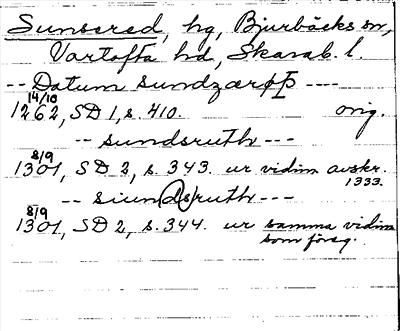 Sunsered, hg, Bjurbäcks sn,
Vartofta hd, Skarab. l.
-- Datum sundzærøþ ----
14/10
1262, SD 1, s. 410. orig.
-- sundsruth ---
8/9
1301, SD 2, s. 343. ur vidim avskr.
1333.
-- siun(ds)ruth ---
8/9
1301, SD 2, s. 344. ur samma vidim
som föreg.